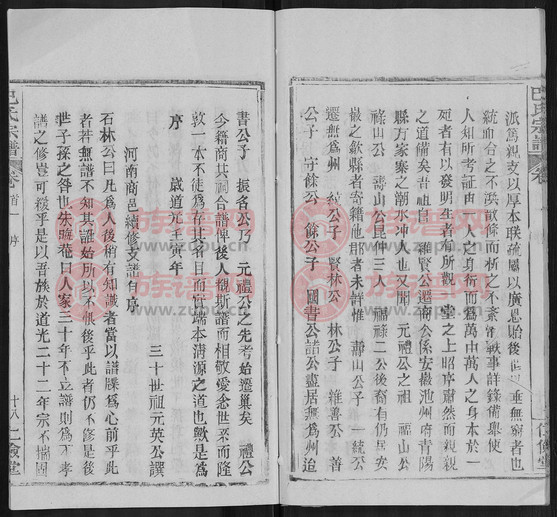 巴氏宗譜
派為親支以厚本联疏屬以廣恩貽後世垂無窮者也
統而合之不洪散條而析之不紊衡戰事詳錄備舉使
人知所考証由一人之身衍而為萬中萬人之身本於一
死者有以發明生者有所觀一堂之上昭序肅然而親親
之道備矣吾祖自 維賢公遷南公係安徽池州府青陽
縣方家寨之潮水冲人也又聞 元禮公之祖 福山公
祿山公 壽山公昆仲三人 福祿二公後裔有仍居安
徽之歙縣者寄籍他郡者未詳惟 壽山公子 統公
遷無為州 紋公子 林公子 維善公 善
公子 守餘公 餘公子 圖書公詰公盡居無為州迨
書公子 振名公子 元禮公之先考始遷巢矣 禮公
今籍商其祠合譜傳後人觀斯譜而相敬愛念世系而隆
敦一本不徒為存其名目而實端本清源之道也歟是為
序 歲道光壬寅年
三十世祖元英公撰
河南商邑續修支譜自序
石林公曰凡為人後稍有知識者當以譜牒為心前乎此
者若無譜不知其誰始所以不恨後乎此者仍不修是後
世子孫之咎也朱晦菴曰人家三十年不立譜則為不孝
譜之修豈可緩乎是以吾族於道光二十二年宗不揣固
巴氏宗譜 卷首一 序 十八